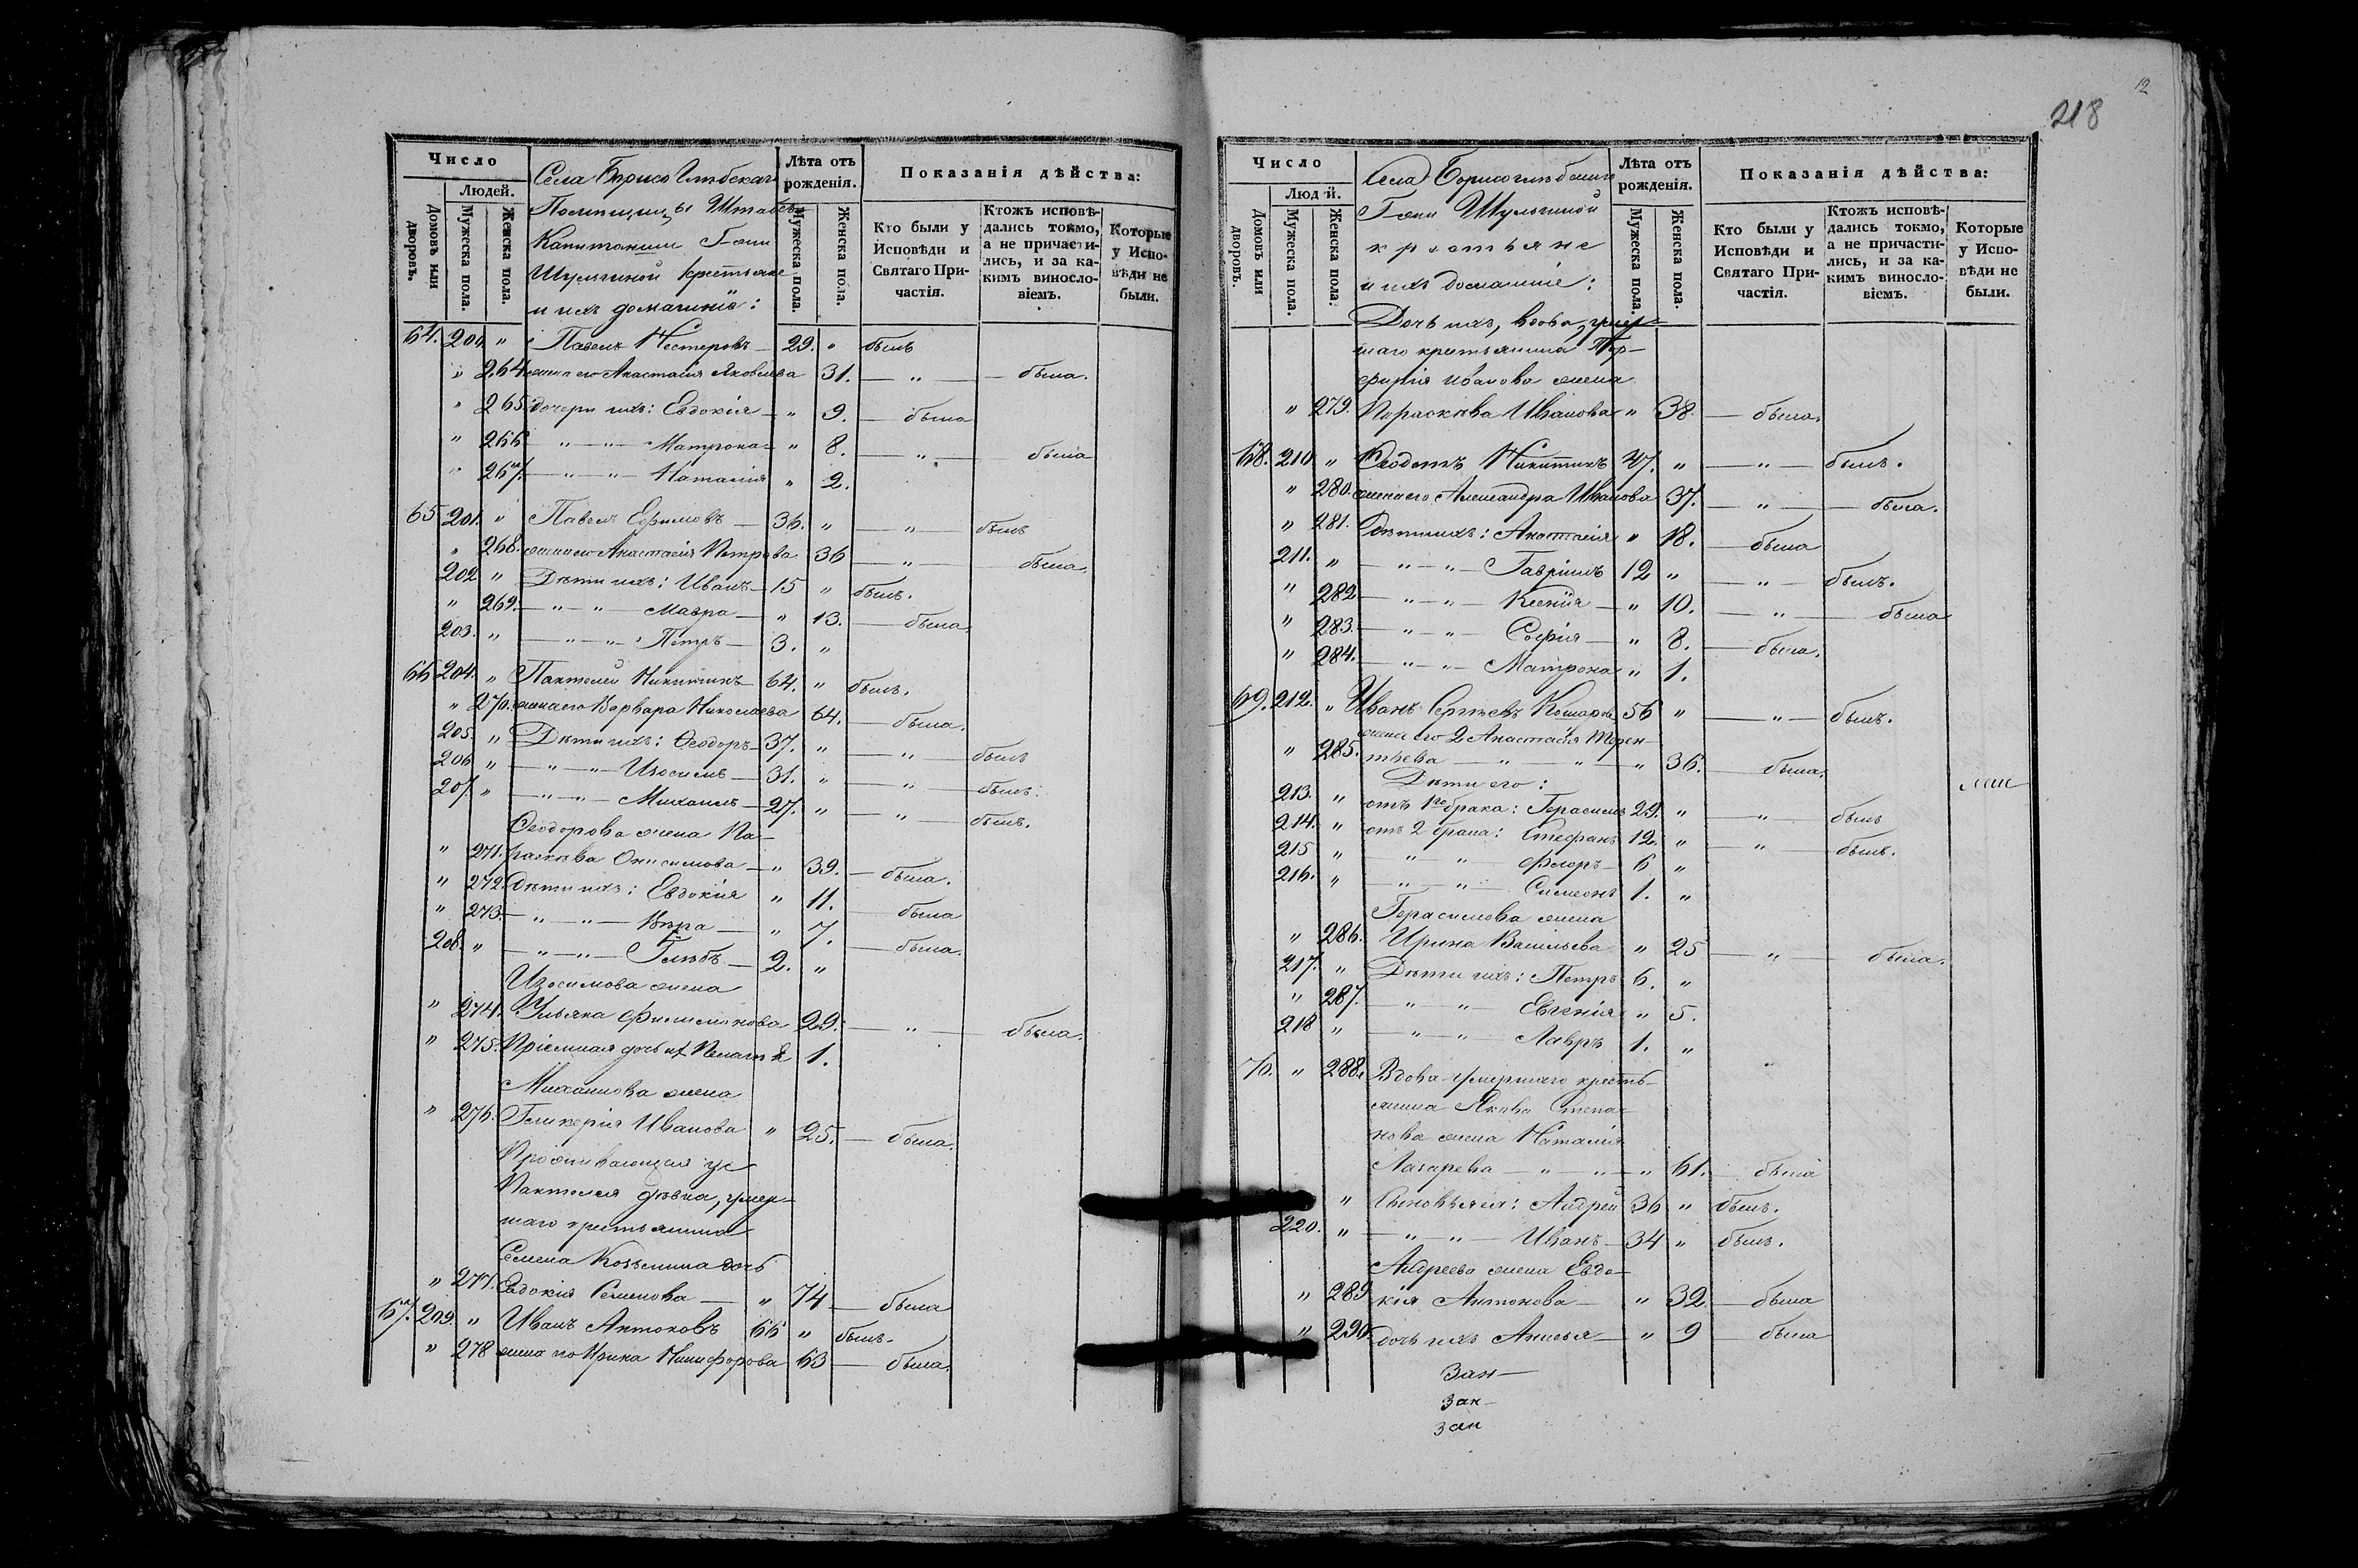 Число
Людей.
Домовъ или дворовъ.
Мужеска пола.
Женска пола.
Села Борисо Глѣбскаго
Помѣщицы Штабсъ
Капитанши Г-жи
Шульгиной крестьяне
и ихъ домашніе:
Лѣта отъ рожденія.
Мужеска пола.
Женска пола.
Показанія дѣйства:
Кто были у Исповѣди и Святаго Причастія.
Ктожъ исповѣдались токмо, а не причастились, и за какимъ винословіемъ.
Которые у Исповѣди не были.
64. 200. " Павелъ Нестеровъ 29. " былъ
" 264 жена его Анастасія Яковлева 31. — " — была.
" 265 дочери ихъ: Евдокія — " 9. — была
" 266 — " — " — Матрона — " 8. — " — была
" 267. — " — " — Наталія " 2.
65 201. " Павелъ Ефимовъ — 36. " — " — былъ
" 268. жена его Анастасія Петрова 36 — " — была.
202 " Дѣти ихъ: Иванъ — 15 " былъ.
" 269. — " — " — Мавра — " 13. — была.
203. " — " — " — Петръ — 3. "
66 204. " Пантелей Никитинъ 64. " былъ.
" 270. жена его Варвара Николаева 64. — была.
205. " Дѣти ихъ: Ѳеодоръ — 37. " — " — былъ
206 " — " — " — Изосимъ — 31. " — " — былъ.
207. " — " — " — Михаилъ — 27. " — " — былъ.
Ѳеодорова жена Па-
" 271. раскева Онисимова — " 39. — была.
" 272. Дѣти ихъ: Евдокія " 11. — была
" 273. — " — " — Вѣра — " 7. — была.
208. " — " — " — Глѣбъ — 2. "
Изосимова жена
" 274. Ульяна Филимонова 29. — " — была.
" 275. Пріемная дочь их Пелагія 1.
Михаилова жена
" 276. Гликерія Иванова " 25. — была.
Проживающая у
Пантелея дѣвка, умер-
шаго крестьянина
Семена Козьмина дочь
" 277. Евдокія Семенова — " 74 — была
67. 209. " Иванъ Антоновъ 66 " былъ.
" 278 жена его Ирина Никифорова 63 — была.
12
218
Число
Людей.
Домовъ или дворовъ.
Мужеска пола.
Женска пола.
Села Борисоглѣбскаго
Г-жи Шульгиной
крестьяне
и ихъ домашніе:
Лѣта отъ рожденія.
Мужеска пола.
Женска пола.
Показанія дѣйства:
Кто были у Исповѣди и Святаго Причастія.
Ктожъ исповѣдались токмо, а не причастились, и за какимъ винословіемъ.
Которые у Исповѣди не были.
Дочь ихъ, вдова, умер-
шаго крестьянина Пор-
фирія Иванова жена
" 279. Параскева Иванова " 38 — была.
68. 210 " Ѳеодотъ Никитинъ 47. " — " — былъ.
" 280. жена его Александра Иванова 37. — " — была.
" 281. Дѣти ихъ: Анастасія " 18. — была
211. " — " — " — Гавріилъ 12 " — " — былъ.
" 282 — " — " — Ксенія — " 10. — " — была
" 283. — " — " — Софія — " 8. — была.
" 284. — " — " — Матрона " 1.
69. 212. " Иванъ Сергѣевъ 56 " — " — былъ.
жена его 2 Анастасія Терен-
" 285. тьева — " — " — " 36. — была.
Дѣти его:
213. " отъ 1го брака: Герасимъ 29. " — " — былъ
214. " отъ 2 брака: Стефанъ 12. " — " — былъ.
215 " " — " — Флоръ — 6 "
216. " — " — " — Симеонъ 1. "
Герасимова жена
" 286. Ирина Васильева " 25 — " — была.
217. " Дѣти ихъ: Петръ 6. "
" 287. — " — " — Евгенія " 5.
218 " — " — " — Лавръ 1. "
70. " 288. Вдова умершаго кресть-
янина Якова Степа-
нова жена Наталія
Лазарева — " — " — " 61. — была
" Сыновья ея: Андрей 36 " былъ.
220. " — " — " — Иванъ — 34 " былъ.
Андреева жена Евдо-
" 289 кія Антонова — " 32 — была
" 290 дочь ихъ Анисья — " 9 — была
Зан—
зан—
зан